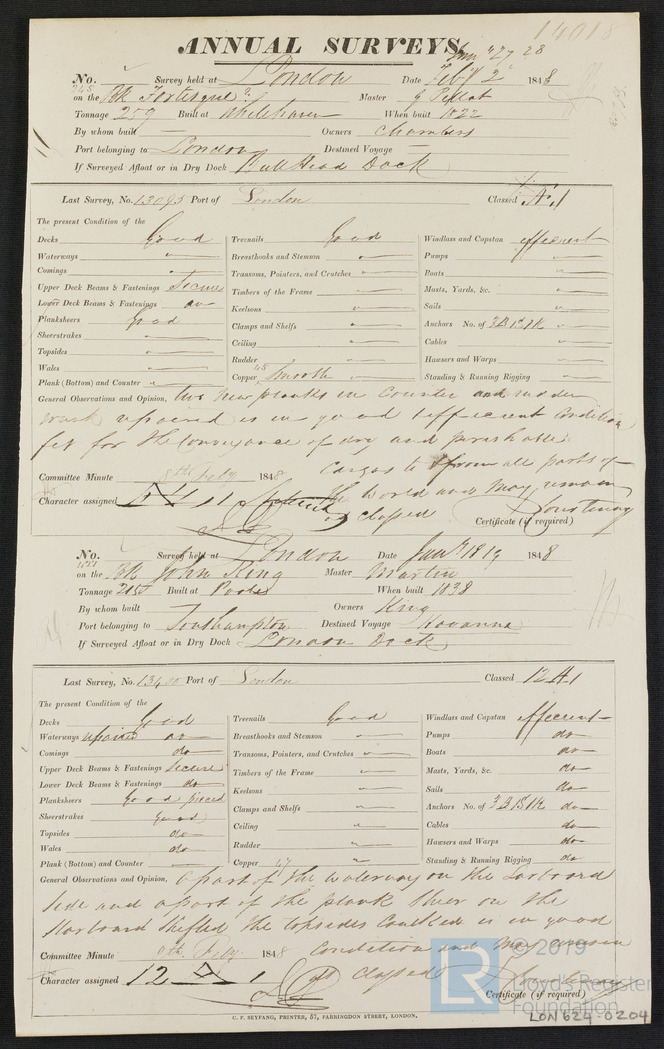 14018
ANNUAL SURVEYS.
Jan 27 28
No. Survey held at London Date Feby 2 1848
on the Bk Fortescue Master Pellat
Tonnage 259 Built at Whitehaven When built 1822
By whom built — Owners Chambers
Port belonging to London Destined Voyage —
If Surveyed Afloat or in Dry Dock Bull Head Dock
Last Survey, No. 13095 Port of London Classed Æ 1
The present Condition of the
Decks Good Treenails Good Windlass and Capstan effecient
Waterways " Breasthooks and Stemson " Pumps "
Comings " Transoms, Pointers, and Crutches " Boats "
Upper Deck Beams & Fastenings Secure Timbers of the Frame " Masts, Yards, &c. "
Lower Deck Beams & Fastenings do Keelsons " Sails "
Planksheers Good Clamps and Shelfs " Anchors No. of 3B 1S 1K "
Sheerstrakes " Ceiling " Cables "
Topsides " Rudder " Hawsers and Warps "
Wales " Copper 48 Smooth Standing & Running Rigging "
Plank (Bottom) and Counter "
General Observations and Opinion, two new planks in Counter and rudder
trunk repaired is in good & effecient Condition
fit for the Conveyance of dry and perishable
Cargos to & from all parts of
Committee Minute 8th Feby 1848
the World and May remain
Character assigned Æ 1
as classed
Certificate (if required)
No. Survey held at London Date Jany 18 19 1848
on the Bk John King Master Martin
Tonnage 215 Built at Poole When built 1838
By whom built Owners King
Port belonging to Southampton Destined Voyage Havanna
If Surveyed Afloat or in Dry Dock London Dock
Last Survey, No. Port of London Classed 12 A 1
The present Condition of the
Decks Good Treenails Good Windlass and Capstan effecient
Waterways repaired do Breasthooks and Stemson " Pumps do
Comings do Transoms, Pointers, and Crutches " Boats do
Upper Deck Beams & Fastenings Secure Timbers of the Frame " Masts, Yards, &c. do
Lower Deck Beams & Fastenings do Keelsons " Sails do
Planksheers Good pieced Clamps and Shelfs " Anchors No. of 3B 1S 1K do
Sheerstrakes Good Ceiling " Cables do
Topsides do Rudder " Hawsers and Warps do
Wales do Copper 47 " Standing & Running Rigging do
Plank (Bottom) and Counter —
General Observations and Opinion, a part of the waterway on the larboard
side and a part of the plank sheer on the
starboard shifted the topsides Caulked is in good
Committee Minute 8th Feby 1848 Condition and May remain
Character assigned 12 A 1 as classed
Certificate (if required)
C. F. SEYFANG, PRINTER, 57, FARRINGDON STREET, LONDON.
LR
© 2019
Lloyd's Register
Foundation
LON624-0204